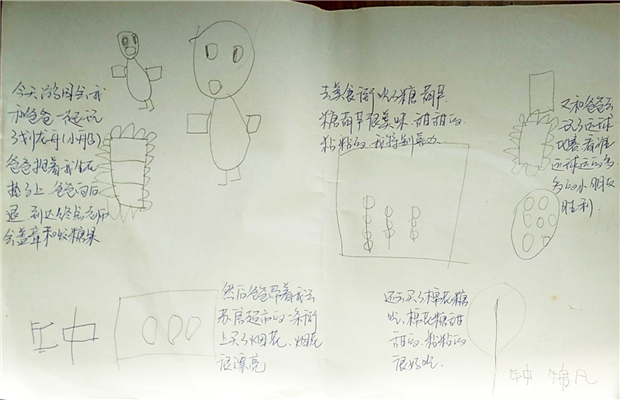 今天游园会我
和爸爸一起玩
了划龙舟(小船)
爸爸抱着我坐在
垫子上,爸爸向后
退,到达终点老师
会盖章和收糖果
去美食街吃了糖葫芦
糖葫芦很美味,甜甜的
粘粘的,我特别喜欢
又和爸爸去
玩了运球
比赛,看谁
运球运的多
多的小朋友
胜利.
然后爸爸带着我去
苏居超市的一条街
上买了烟花,烟花
很漂亮
还去买了棉花糖
吃,棉花糖甜
甜的,粘粘的
很好吃.
钟
凡